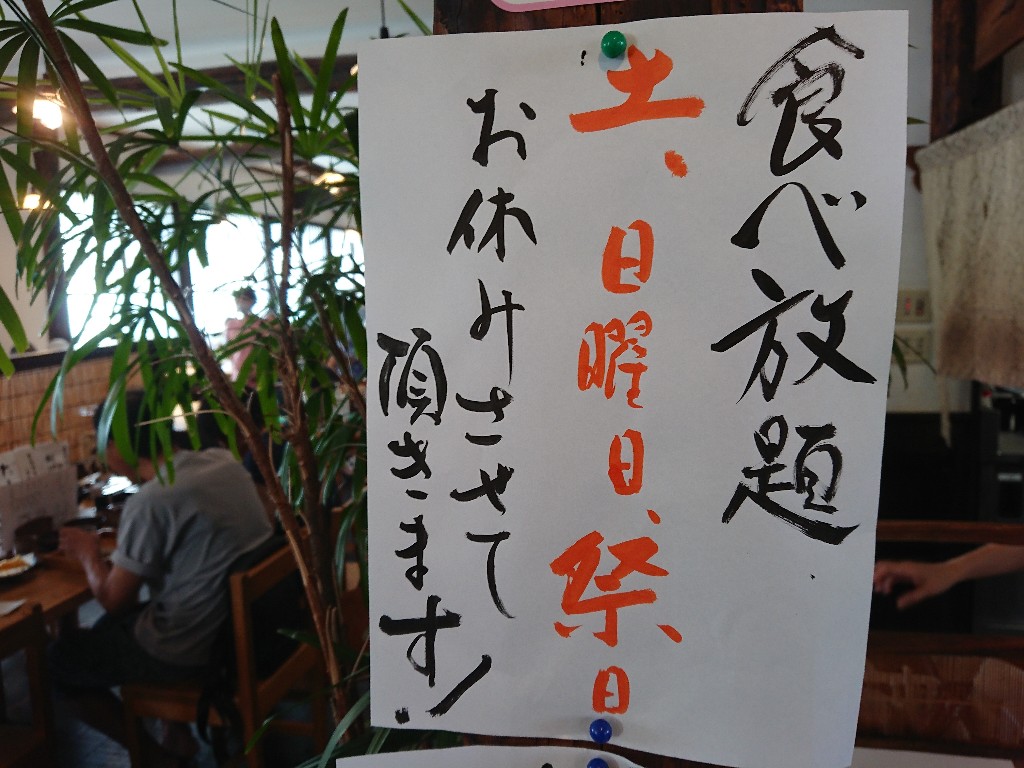 食べ放題
土、日曜日、祭日
お休みさせて
頂きます!